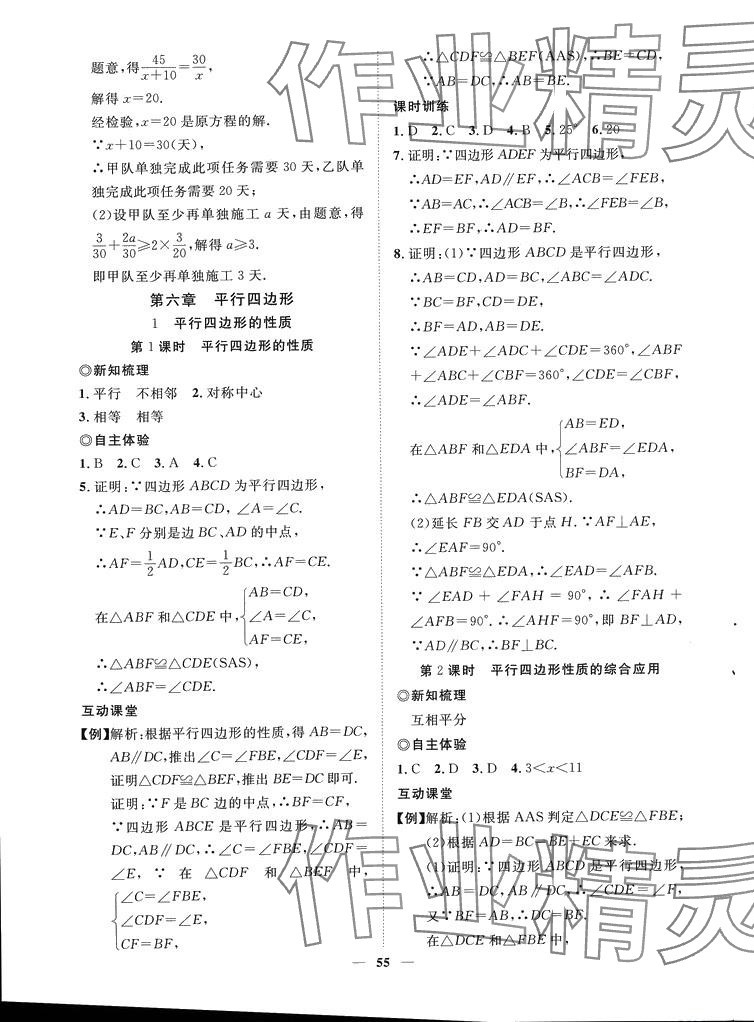 题意，得45/(x+10)=30/x，
解得 x=20.
经检验，x=20 是原方程的解.
∵x+10=30(天)，
∴甲队单独完成此项任务需要 30 天，乙队单
独完成此项任务需要 20 天；
(2)设甲队至少再单独施工 a 天，由题意，得
3/30+2a/30≥2×3/20，解得 a≥3.
即甲队至少再单独施工 3 天.
第六章 平行四边形
1 平行四边形的性质
第 1 课时 平行四边形的性质
◎新知梳理
1. 平行 不相邻 2. 对称中心
3. 相等 相等
◎自主体验
1. B 2. C 3. A 4. C
5. 证明：∵四边形 ABCD 为平行四边形，
∴AD=BC,AB=CD,∠A=∠C.
∵E、F 分别是边 BC、AD 的中点，
∴AF=1/2AD,CE=1/2BC,∴AF=CE.
在△ABF 和△CDE 中，{AB=CD,
∠A=∠C,
AF=CE,
∴△ABF≌△CDE(SAS)，
∴∠ABF=∠CDE.
互动课堂
【例】解析：根据平行四边形的性质，得 AB=DC,
AB∥DC，推出∠C=∠FBE,∠CDF=∠E,
证明△CDF≌△BEF，推出 BE=DC 即可.
证明：∵F 是 BC 边的中点，∴BF=CF,
∵四边形 ABCE 是平行四边形，∴AB=
DC,AB∥DC,∴∠C=∠FBE,∠CDF=
∠E,∵ 在 △CDF 和 △BEF 中，
{∠C=∠FBE,
∠CDF=∠E,
CF=BF,
∴△CDF≌△BEF(AAS),∴BE=CD,
∵AB=DC,∴AB=BE.
课时训练
1. D 2. C 3. D 4. B 5. 25° 6. 20
7. 证明：∵四边形 ADEF 为平行四边形，
∴AD=EF,AD∥EF,∴∠ACB=∠FEB,
∵AB=AC,∴∠ACB=∠B,∴∠FEB=∠B,
∴EF=BF,∴AD=BF.
8. 证明：(1)∵四边形 ABCD 是平行四边形，
∴AB=CD,AD=BC,∠ABC=∠ADC.
∵BC=BF,CD=DE,
∴BF=AD,AB=DE.
∵∠ADE+∠ADC+∠CDE=360°,∠ABF
+∠ABC+∠CBF=360°,∠CDE=∠CBF,
∴∠ADE=∠ABF.
在△ABF 和△EDA 中，{AB=ED,
∠ABF=∠EDA,
BF=DA,
∴△ABF≌△EDA(SAS).
(2)延长 FB 交 AD 于点 H.∵AF⊥AE,
∴∠EAF=90°.
∵△ABF≌△EDA,∴∠EAD=∠AFB.
∵∠EAD+∠FAH=90°,∴∠FAH+
∠AFB=90°.∴∠AHF=90°，即 FB⊥AD,
∵AD∥BC,∴BF⊥BC.
第 2 课时 平行四边形性质的综合应用
◎新知梳理
互相平分
◎自主体验
1. C 2. D 3. D 4. 3<x<11
互动课堂
【例】解析：(1)根据 AAS 判定△DCE≌△FBE；
(2)根据 AD=BC=BE+EC 来求.
(1)证明：∵四边形 ABCD 是平行四边形，
∴AB=DC,AB∥DC,∴∠CDE=∠F,
又∵BF=AB,∴DC=BF.
在△DCE 和△FBE 中，
55
作业精灵
作业精灵